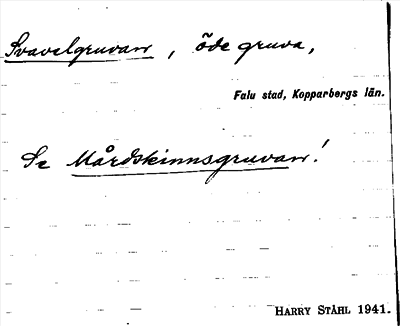 Svavelgruvan, öde gruva,
Falu stad, Kopparbergs län.
Se Mårdskinnsgruvan!
HARRY STÅHL 1941.